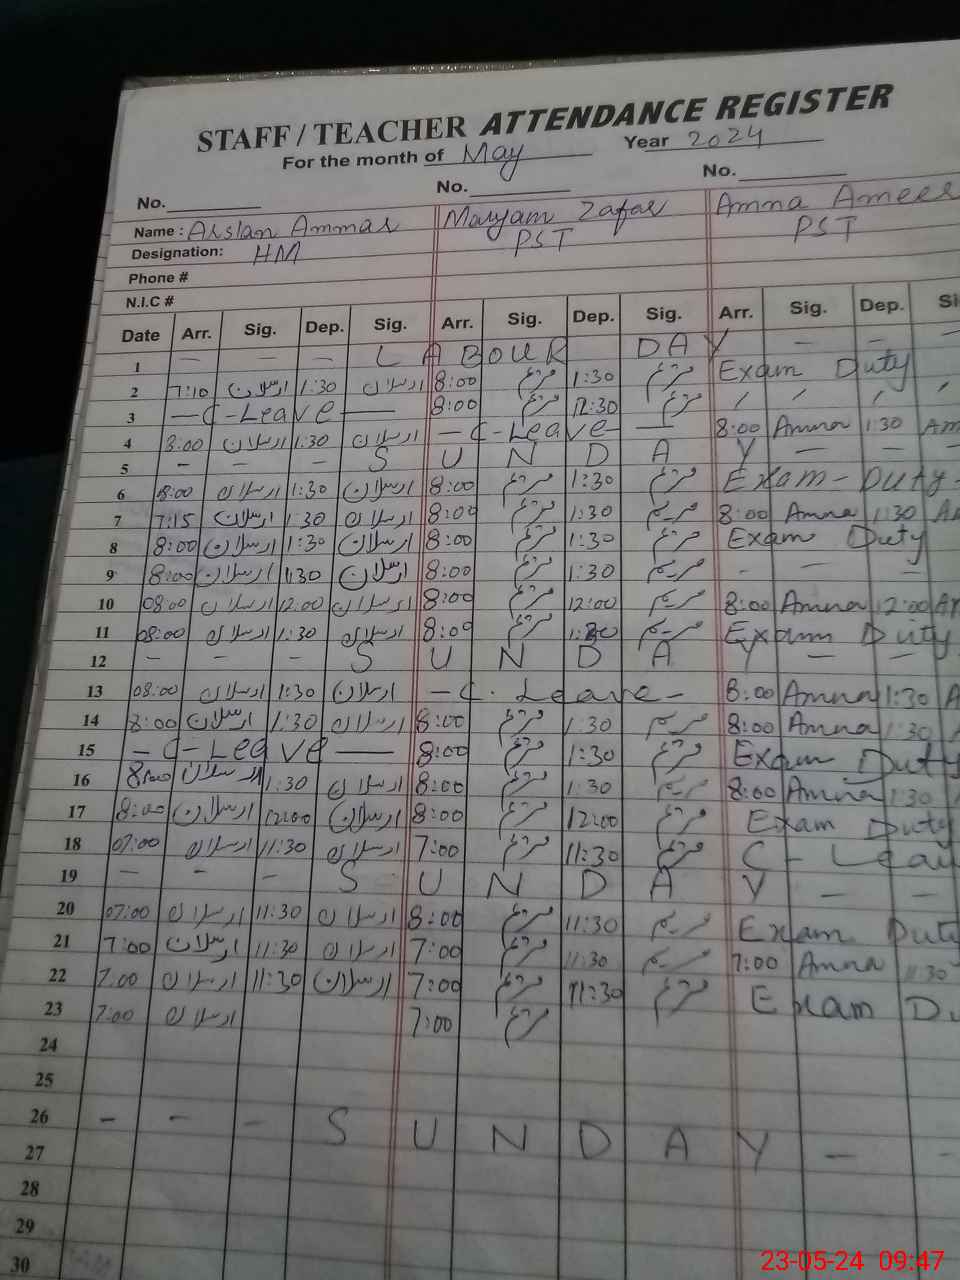 STAFF / TEACHER ATTENDANCE REGISTER
For the month of May Year 2024
No. No. No.
Name : Arslan Ammar Maryam Zafar Amna Ameer
Designation: HM PST PST
Phone #
N.I.C #
Date Arr. Sig. Dep. Sig. Arr. Sig. Dep. Sig. Arr. Sig. Dep. Si
1 - - - LABOUR DAY - - -
2 7:10 ارسلان 1:30 ارسلان 8:00 مریم 1:30 مریم Exam Duty
3 - C-Leave - 8:00 مریم 12:30 مریم / / / /
4 8:00 ارسلان 1:30 ارسلان - C-Leave - 8:00 Amna 1:30 Am
5 - - - SUNDAY - - -
6 08:00 ارسلان 1:30 ارسلان 8:00 مریم 1:30 مریم Exam-Duty-
7 7:15 ارسلان 1:30 ارسلان 8:00 مریم 1:30 مریم 8:00 Amna 1:30 A
8 8:00 ارسلان 1:30 ارسلان 8:00 مریم 1:30 مریم Exam Duty
9 8:00 ارسلان 1:30 ارسلان 8:00 مریم 1:30 مریم - - -
10 08:00 ارسلان 12:00 ارسلان 8:00 مریم 12:00 مریم 8:00 Amna 12:00 A
11 08:00 ارسلان 1:30 ارسلان 8:00 مریم 1:30 مریم Exam Duty
12 - - - SUNDAY - -
13 08:00 ارسلان 1:30 ارسلان - C. Leave - 8:00 Amna 1:30 A
14 8:00 ارسلان 1:30 ارسلان 8:00 مریم 1:30 مریم 8:00 Amna 1:30
15 - C-Leave - 8:00 مریم 1:30 مریم Exam Duty
16 8:00 ارسلان 1:30 ارسلان 8:00 مریم 1:30 مریم 8:00 Amna 1:30
17 8:00 ارسلان 12:00 ارسلان 8:00 مریم 12:00 مریم Exam Duty
18 07:00 ارسلان 11:30 ارسلان 7:00 مریم 11:30 مریم C-Leav
19 - - - SUNDAY - -
20 07:00 ارسلان 11:30 ارسلان 8:00 مریم 11:30 مریم Exam Duty
21 7:00 ارسلان 11:30 ارسلان 7:00 مریم 11:30 مریم 7:00 Amna 11:30
22 7:00 ارسلان 11:30 ارسلان 7:00 مریم 11:30 مریم Exam Du
23 7:00 ارسلان 7:00 مریم
24
25
26 - - - SUNDAY - -
27
28
29
30
23-05-24 09:47